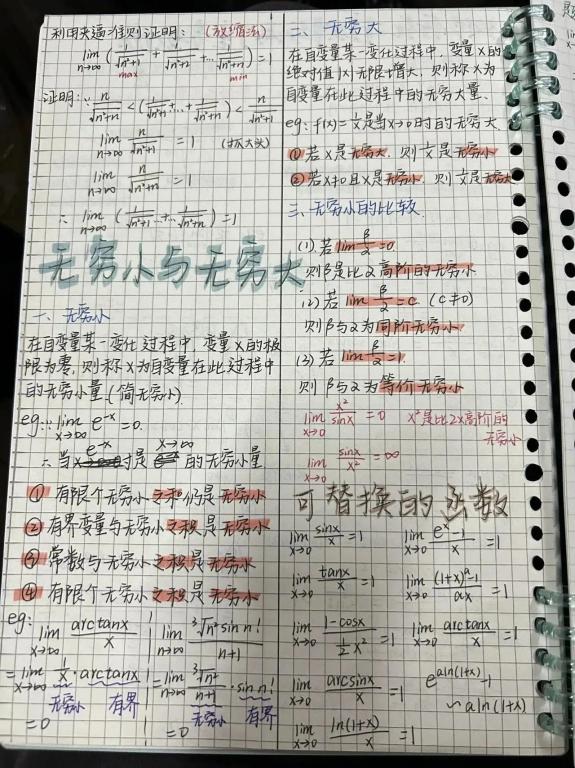 利用夹逼准则证明: (放缩法)
lim n→∞ (1/√(n²+1) + 1/√(n²+2) + … 1/√(n²+n)) = 1
max min
证明: ∵ n/√(n²+n) < (1/√(n²+1) + … + 1/√(n²+n)) < n/√(n²+1)
lim n→∞ n/√(n²+1) = 1 (抓大头)
lim n→∞ n/√(n²+n) = 1
∴ lim n→∞ (1/√(n²+1) + … + 1/√(n²+n)) = 1
无穷小与无穷大
一、无穷小
在自变量某一变化过程中, 变量X的极
限为零, 则称X为自变量在此过程中
的无穷小量.(简无穷小)
eg: ∵ lim x→∞ e^-x = 0.
∴ 当 x→∞ 时 e^-x 是 的无穷小量
① 有限个无穷小之和仍是无穷小
② 有界变量与无穷小之积是无穷小
③ 常数与无穷小之积是无穷小
④ 有限个无穷小之积是无穷小
eg:
lim x→∞ arctanx/x
= lim x→∞ 1/x · arctanx
无穷小 有界
= 0
lim n→∞ ∛n² sin n!/(n+1)
= lim n→∞ ∛n²/(n+1) · sin n!
无穷小 有界
= 0
二、无穷大
在自变量某一变化过程中, 变量X的
绝对值|X|无限增大, 则称X为
自变量在此过程中的无穷大量.
eg: f(x)=1/x是当x→0时的无穷大.
① 若X是无穷大, 则1/X是无穷小
② 若X≠0且X是无穷小, 则1/X是无穷大
三、无穷小的比较
(1) 若 lim β/α = 0
则β是比α高阶的无穷小
(2) 若 lim β/α = c (c≠0)
则β与α为同阶无穷小
(3) 若 lim β/α = 1
则β与α为等价无穷小
lim x→0 x²/sinx = 0 x²是比2x高阶的
无穷小
lim x→0 sinx/x² = ∞
可替换的函数
lim x→0 sinx/x = 1 lim x→0 (e^x-1)/x = 1
lim x→0 tanx/x = 1 lim x→0 ((1+x)^a-1)/ax = 1
lim x→0 (1-cosx)/(½x²) = 1 lim x→0 arctanx/x = 1
lim x→0 arcsinx/x = 1 e^(aln(1+x))-1
~aln(1+x)
lim x→0 ln(1+x)/x = 1